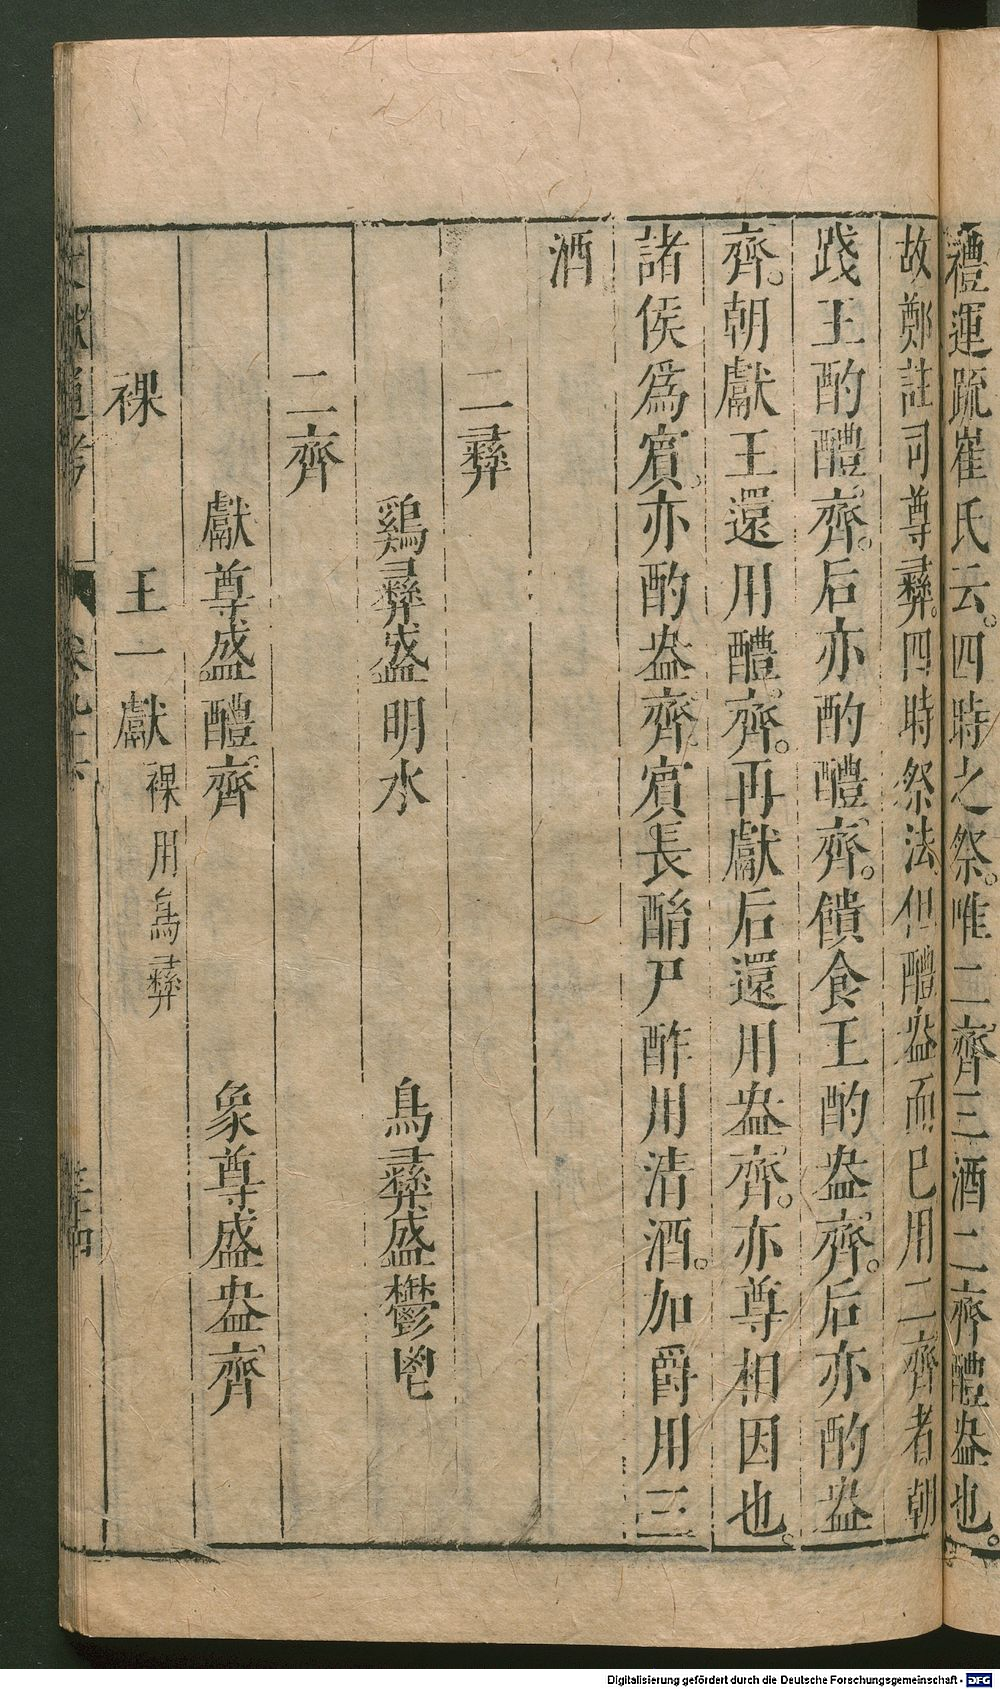 禮運疏崔氏云。四時之祭。唯二齊三酒二齊醴盎也。
故鄭註司尊彝。四時祭法。但醴盎而已用二齊者。朝
踐王酌醴齊。后亦酌醴齊。饋食王酌盎齊。后亦酌盎
齊。朝獻王還用醴齊。再獻后還用盎齊。亦尊相因也。
諸侯爲賓。亦酌盎齊。賓長酳尸酢用清酒。加爵用三
酒
二彝
鷄彝盛明水 鳥彝盛鬱鬯
二齊
獻尊盛醴齊 象尊盛盎齊
祼 王一獻 祼用鳥彝
文獻通考 卷九十六
Digitalisierung gefördert durch die Deutsche Forschungsgemeinschaft - DFG